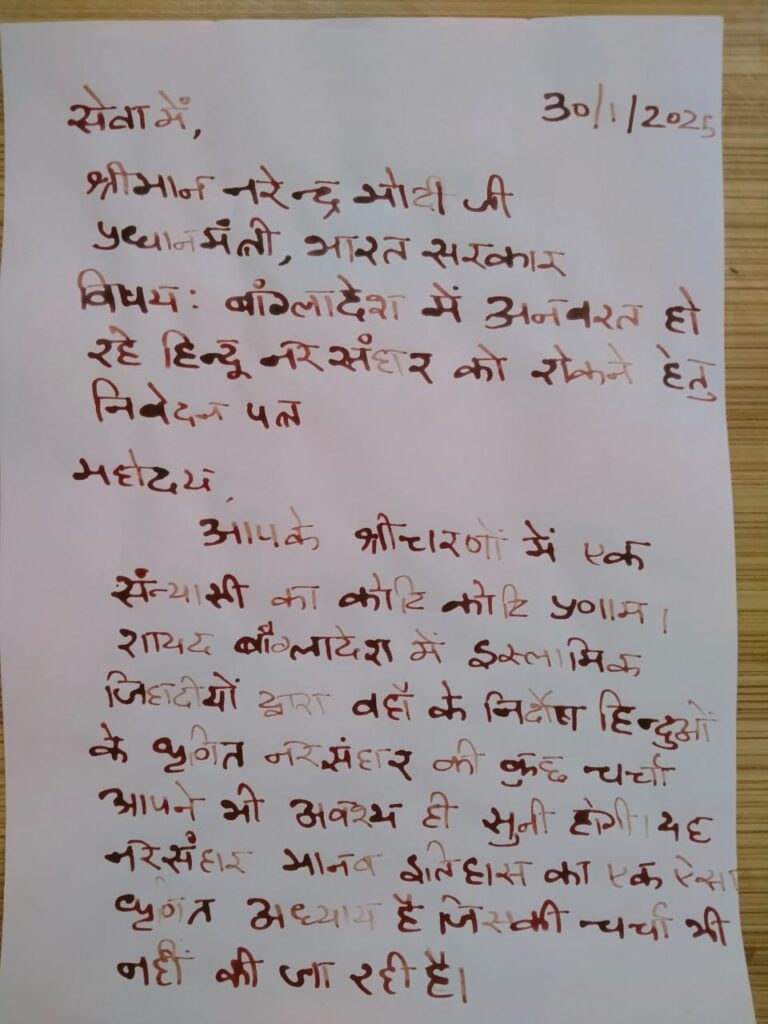 सेवा में,
30/1/2025
श्रीमान नरेन्द्र मोदी जी
प्रधानमंत्री, भारत सरकार
विषय: बांग्लादेश में अनवरत हो
रहे हिन्दू नरसंहार को रोकने हेतु
निवेदन पत्र
महोदय,
आपके श्रीचरणों में एक
संन्यासी का कोटि कोटि प्रणाम।
शायद बाँग्लादेश में इस्लामिक
जिहादीयों द्वारा वहाँ के निर्दोष हिन्दुओं
के घृणित नरसंहार की कुछ चर्चा
आपने भी अवश्य ही सुनी होगी। यह
नरसंहार मानव इतिहास का एक ऐसा
घृणित अध्याय है जिसकी चर्चा भी
नहीं की जा रही है।